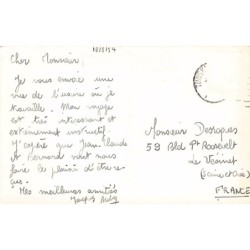 18/8/54
Cher Monsieur,
Je vous envoie une
vue de l'œuvre où je
travaille. Mon voyage
est très intéressant et
extrêmement instructif.
J'espère que Jean-Claude
et Bernard vont nous
faire le plaisir d'être re-
çus.
Mes meilleures amitiés
Monsieur Desropes
59 Bld Pt Roosevelt
Le Vésinet
(Seine et Oise)
FRANCE